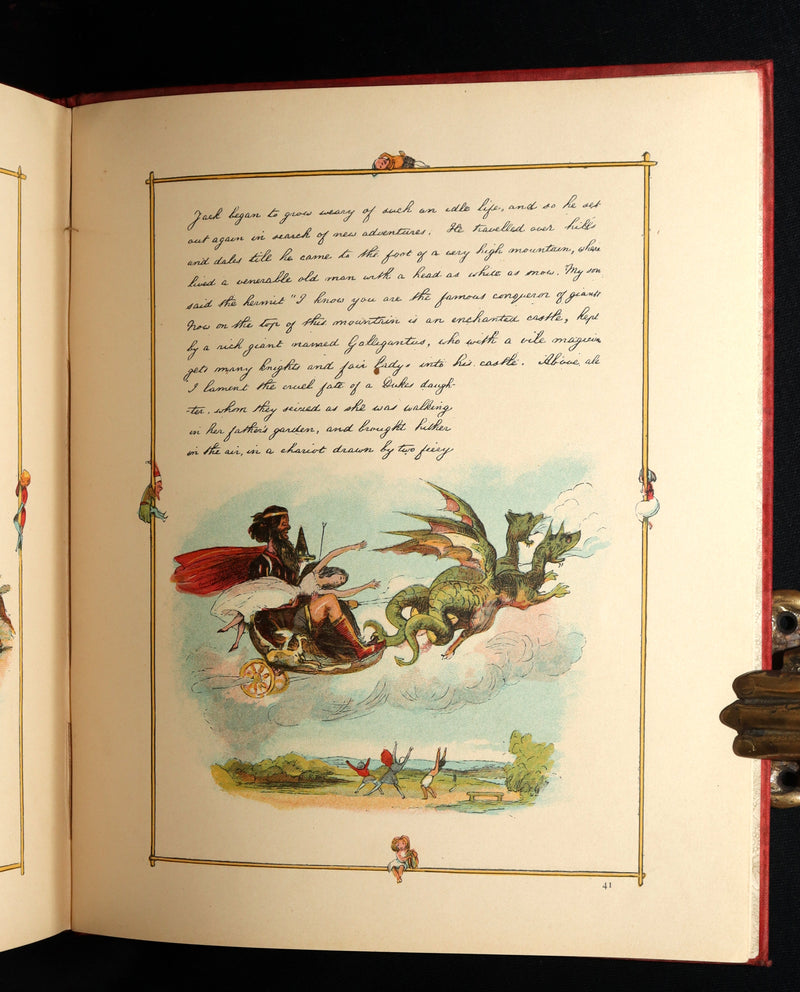 Jack began to grow weary of such an idle life, and so he set
out again in search of new adventures. He travelled over hills
and dales till he came to the foot of a very high mountain, where
lived a venerable old man with a head as white as snow. My son
said the hermit "I know you are the famous conqueror of giants
Now on the top of this mountrin is an enchanted castle, kept
by a rich giant named Gallegantus, who with a vile magician
gets many knights and fair ladys into his castle. Above, all
"I lament the cruel fate of a Dukes daugh-
-ter, whom they seized as she was walking
in her father's garden, and brought hither
in the air, in a chariot drawn by two fiery
41